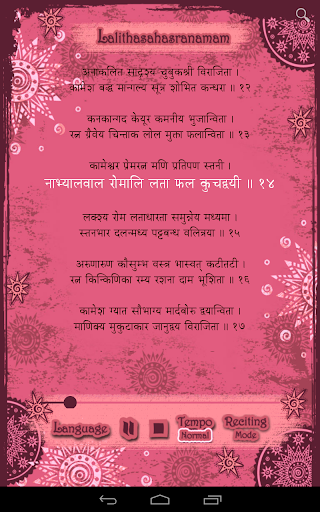 Lalithasahasranamam
अनाकलित सादृश्य चुबुकश्री विराजिता ।
कामेश बद्ध मान्गल्य सूत्र शोभित कन्धरा ॥ १२
कनकान्गद केयूर कमनीय भुजान्विता ।
रत्न ग्रैवेय चिन्ताक लोल मुक्ता फलान्विता ॥ १३
कामेश्वर प्रेमरत्न मणि प्रतिपण स्तनी ।
नाभ्यालवाल रोमालि लता फल कुचद्वयी ॥ १४
लक्ष्य रोम लताधारता समुन्नेय मध्यमा ।
स्तनभार दलन्मध्य पट्टबन्ध वलित्रया ॥ १५
अरुणारुण कौसुम्भ वस्त्र भास्वत् कटीतटी ।
रत्न किन्किणिका रम्य रशना दाम भूशिता ॥ १६
कामेश ग्यात सौभाग्य मार्दवोरु द्वयान्विता ।
माणिक्य मुकुटाकार जानुद्वय विराजिता ॥ १७
Language
Tempo
Normal
Reciting
Mode